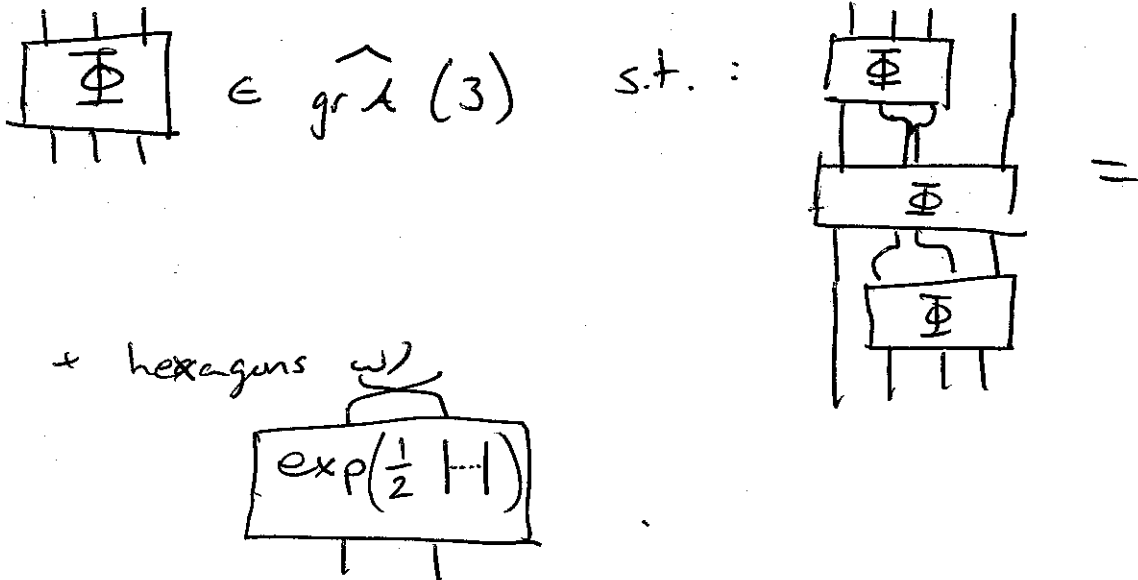 Φ ∈ gr Â (3) s.t. :
Φ
Φ =
Φ
+ hexagons w/
exp(1/2 |----|)